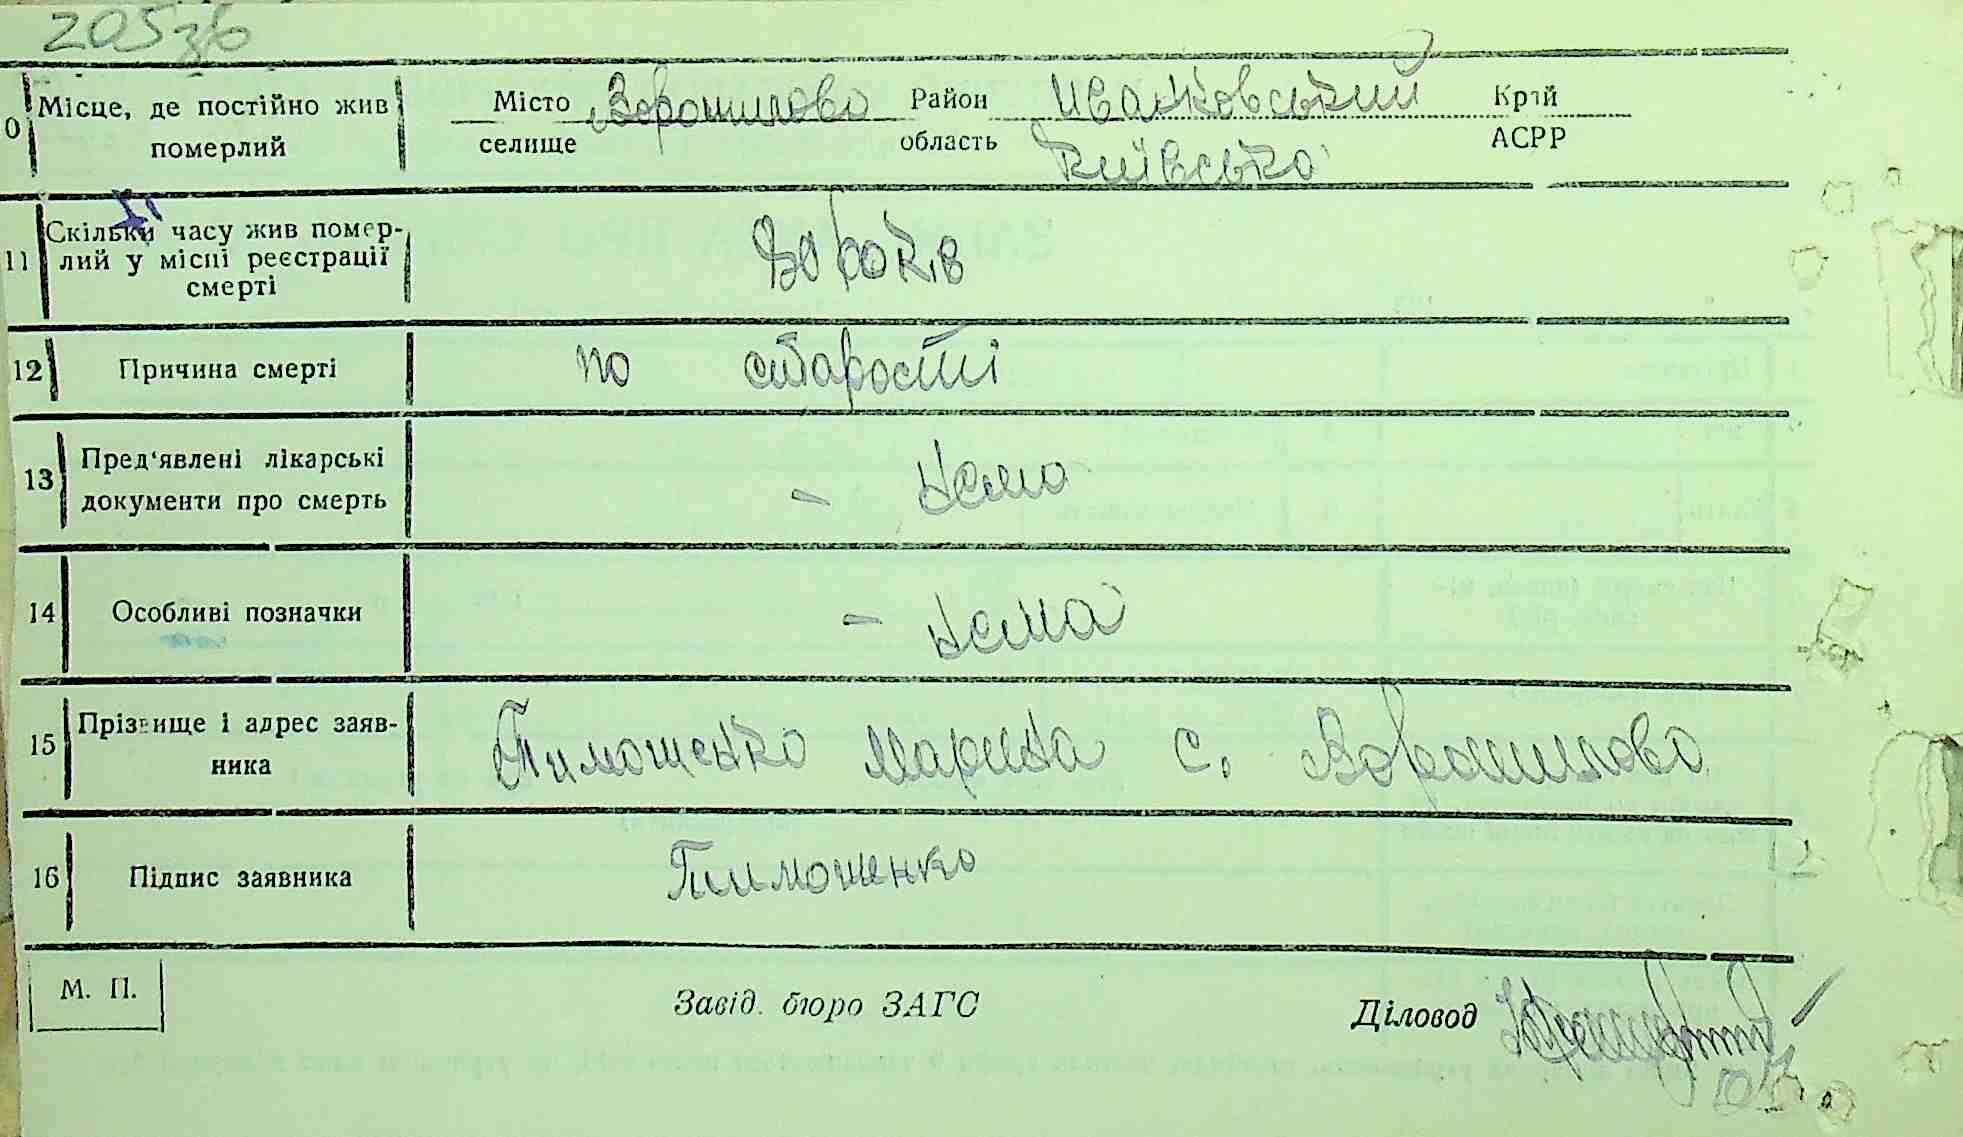 205зв
0 Місце, де постійно жив Місто Ворошилово Район Иванковський Край
померлий селище область Київсько АСРР
11 Скільки часу жив помер-
лий у місці реєстрації років
смерті
12 Причина смерті по старості
13 Пред'явлені лікарські - Нема
документи про смерть
14 Особливі позначки - Нема
15 Прізвище і адрес заяв- Тимошенко Марина с. Ворошилово
ника
16 Підпис заявника Тимошенко
М. П. Завід. бюро ЗАГС Діловод